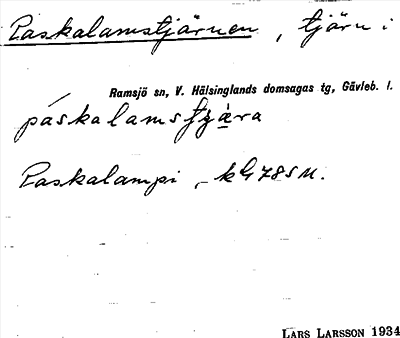 Paskalamstjärnen, tjärn i
Ramsjö sn, V. Hälsinglands domsagas tg, Gävleb. l.
páskalamstjära
Paskalampi, kG 78 S M.
LARS LARSSON 1934